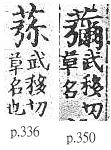 武移切
草名也
p.336
武移切
草名
p.350